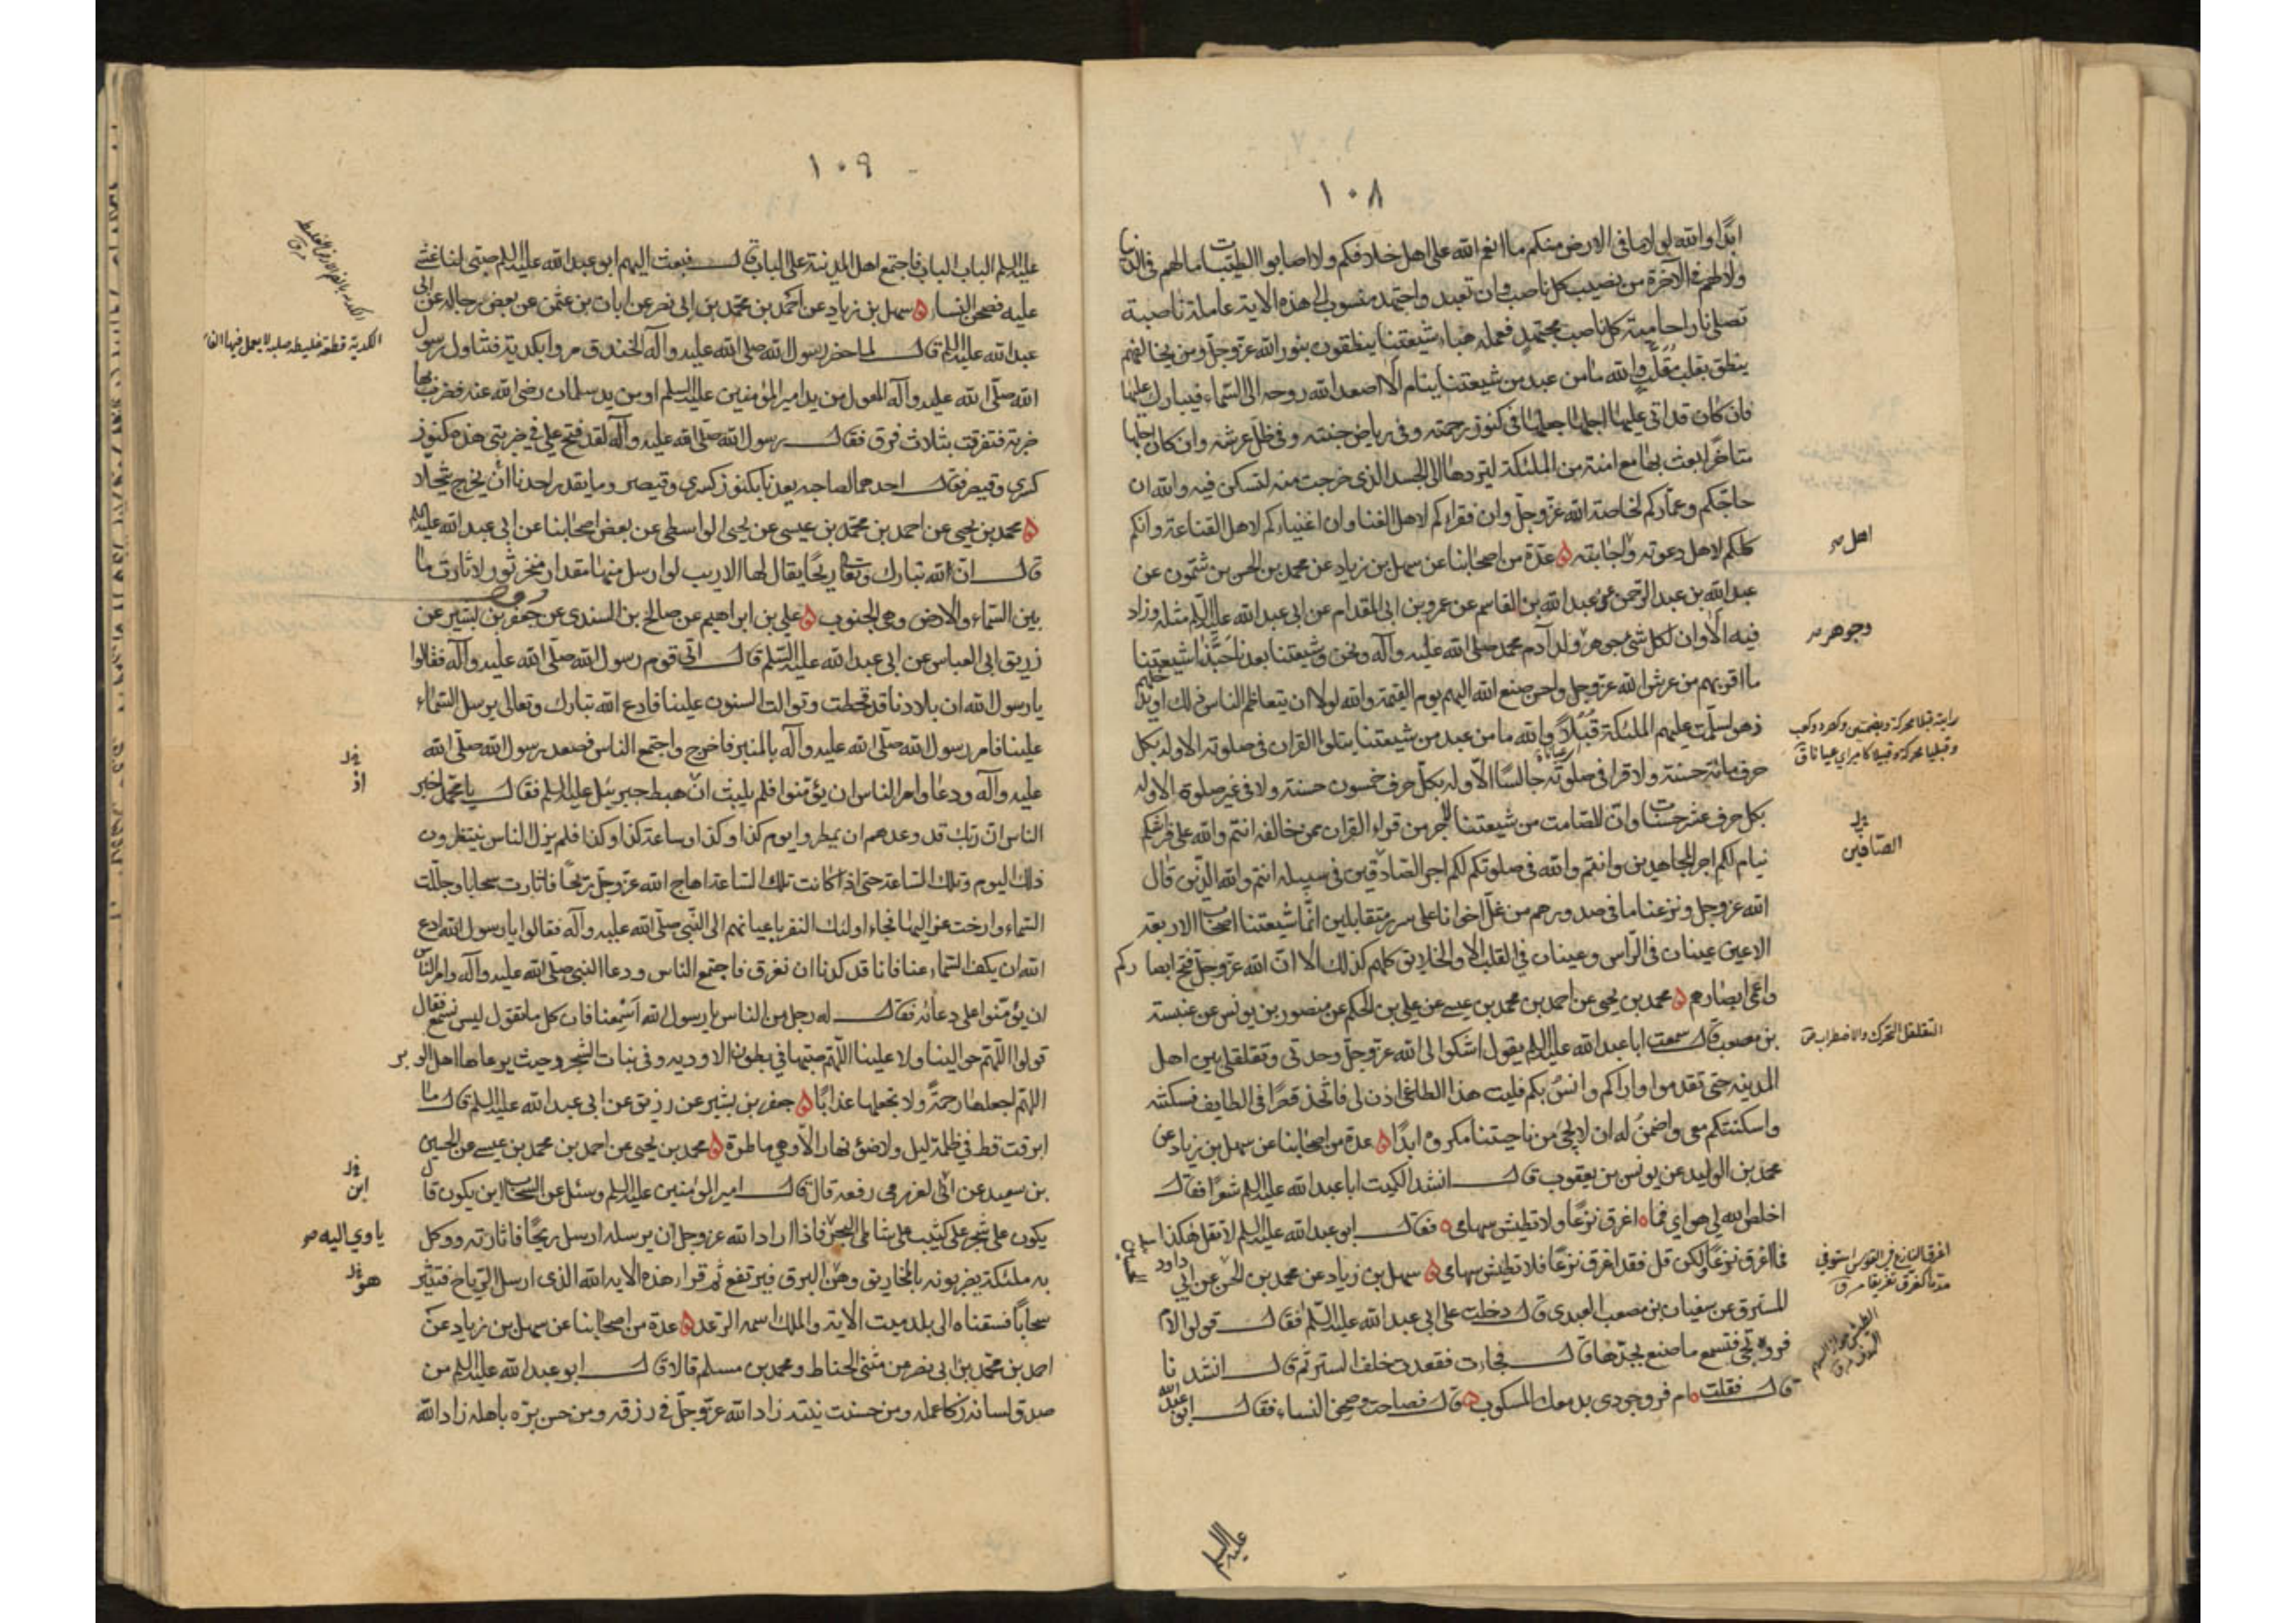 ١٠٨
ابدا والله لولا ما فى الارض منكم ما انعم الله على اهل خلافكم ولا اصابوا الطيبات ما لهم فى الدنيا
ولا لهم فى الآخرة من نصيب كل ناصب وان تعبد واجتهد منسوب الى هذه الاية عاملة ناصبة
تصلى نارا حامية كل ناصب مجتهد فعمله هباء شيعتنا ينطقون بنور الله عز وجل ومن يخالفهم
ينطق بتفلت والله ما من عبد من شيعتنا ينام الا اصعد الله روحه الى السماء فيبارك عليها
فان كان قد اتى عليها اجلها جعلها فى كنوز رحمته وفى رياض جنته وفى ظل عرشه وان كان اجلها
متاخرا بعث بها مع امنته من الملئكة ليردها الى الجسد الذى خرجت منه لتسكن فيه والله ان
حاجكم وعماركم لخاصة الله عز وجل وان فقراءكم لاهل الغنا وان اغنياءكم لاهل القناعة وانكم
كلكم لاهل دعوته واجابته ه عدة من اصحابنا عن سهل بن زياد عن محمد بن الحسن بن شمون عن
عبد الله بن عبد الرحمن عن عبد الله بن القاسم عن عمرو بن ابى المقدام عن ابى عبد الله عليه السلم مثله وزاد
فيه الا وان لكل شئ جوهر وجوهر ولد آدم محمد صلى الله عليه وآله ونحن وشيعتنا بعدنا حبذا شيعتنا
ما اقربهم من عرش الله عز وجل واحسن صنع الله اليهم يوم القيمة والله لولا ان يتعاظم الناس ذلك او يدخلهم
زهو لسلمت عليهم الملئكة قبلا والله ما من عبد من شيعتنا يتلوا القران فى صلوته الا وله بكل
حرف مائة حسنة ولا قرا فى صلوته جالسا الا وله بكل حرف خمسون حسنة ولا فى غير صلوة الا وله
بكل حرف عشر حسنات وان للصامت من شيعتنا لاجر من قراء القران ممن خالفه انتم والله على فرشكم
نيام لكم اجر المجاهدين وانتم والله فى صلوتكم لكم اجر الصادقين فى سبيله انتم والله الذين قال
الله عز وجل ونزعنا ما فى صدورهم من غل اخوانا على سرر متقابلين انما شيعتنا اصحاب الاربعة
الاعين عينان فى الراس وعينان فى القلب الا والخلايق كلهم كذلك الا ان الله عز وجل فتح ابصاركم
واعمى ابصارهم ه محمد بن يحيى عن احمد بن محمد بن عيسى عن على بن الحكم عن منصور بن يونس عن عنبسة
بن مصعب قال سمعت ابا عبد الله عليه السلم يقول اشكوا الى الله عز وجل وحدتى وتقلقلى بين اهل
المدينه حتى تقدموا واراكم وانس بكم فليت هذا الطاغى اذن لى فاتخذ قصرا فى الطايف فسكنته
واسكنتكم معى واضمن له ان لا يجئ من ناحيتنا مكروه ابدا ه عدة من اصحابنا عن سهل بن زياد عن
محمد بن الوليد عن يونس بن يعقوب قال انشد الكميت ابا عبد الله عليه السلم شعرا فقال
اخلص الله لى هواى فما ه اغرق نزعا ولا تطيش سهامى ه فقال ابو عبد الله عليه السلم لا تقل هكذا
فما اغرق نزعا ولكن قل فقد اغرق نزعا فلا تطيش سهامى ه سهل بن زياد عن محمد بن الحسن عن ابى داود
المسترق عن سفيان بن مصعب العبدى قال دخلت على ابى عبد الله عليه السلم فقال قولوا لام
فروة تجئ فتسمع ما صنع بجدها قال فجاءت فقعدت خلف الستر ثم قال انشدنا
قال فقلت ه ام فرو جودى بدمعك المسكوب ه قال فصاحت وصحن النساء فقال ابو عبد الله
عليه السلم
اهل
وجوهر
الصافين
التقلقل التحرك والاضطراب
اغرق النازع فى القوس استوفى
مدها كغرق تغريقا
١٠٩
عليه السلم الباب الباب فاجتمع اهل المدينة على الباب قال فبعث اليهم ابو عبد الله عليه السلم صبى لنا غشى
عليه فصحن النساء ه سهل بن زياد عن احمد بن محمد بن ابى نصر عن ابان بن عثمن عن بعض رجاله عن ابى
عبد الله عليه السلم قال لما حفر رسول الله صلى الله عليه وآله الخندق مروا بكدية فتناول رسول
الله صلى الله عليه وآله المعول من يد امير المؤمنين عليه السلم او من يد سلمان رضى الله عنه فضرب بها
ضربة فتفرقت بثلاث فرق فقال رسول الله صلى الله عليه وآله لقد فتح على فى ضربتى هذه كنوز
كسرى وقيصر فقال احدهما لصاحبه يعدنا بكنوز كسرى وقيصر وما يقدر احدنا ان يخرج يتخلا
ه محمد بن يحيى عن احمد بن محمد بن عيسى عن يحيى الواسطى عن بعض اصحابنا عن ابى عبد الله عليه السلم
قال ان لله تبارك وتعالى ريحا يقال لها الازيب لو ارسل منها مقدار منخر ثور لاثارت ما
بين السماء والارض وهى الجنوب ه على بن ابراهيم عن صالح بن السندى عن جعفر بن بشير عن
زريق ابى العباس عن ابى عبد الله عليه السلم قال اتى قوم رسول الله صلى الله عليه وآله فقالوا
يا رسول الله ان بلادنا قد قحطت وتوالت السنون علينا فادع الله تبارك وتعالى يرسل السماء
علينا فامر رسول الله صلى الله عليه وآله بالمنبر فاخرج واجتمع الناس فصعد رسول الله صلى الله
عليه وآله ودعا وامر الناس ان يؤمنوا فلم يلبث ان هبط جبرئيل عليه السلم فقال يا محمد اخبر
الناس ان ربك قد وعدهم ان يمطروا يوم كذا وكذا وساعة كذا وكذا فلم يزل الناس ينتظرون
ذلك اليوم وتلك الساعة حتى اذا كانت تلك الساعة اهاج الله عز وجل ريحا فاثارت سحابا وجللت
السماء وارخت عزاليها فجاء اولئك النفر باعيانهم الى النبى صلى الله عليه وآله فقالوا يا رسول الله ادع
الله ان يكف السماء عنا فانا قد كدنا ان نغرق فاجتمع الناس ودعا النبى صلى الله عليه وآله وامر الناس
ان يؤمنوا على دعائه فقال له رجل من الناس يا رسول الله اسمعنا فان كل ما تقول ليس نسمع فقال
قولوا اللهم حوالينا ولا علينا اللهم صبها فى بطون الاوديه وفى نبات الشجر وحيث يرعاها اهل الوبر
اللهم اجعلها رحمة ولا تجعلها عذابا ه جعفر بن بشير عن رزيق عن ابى عبد الله عليه السلم قال ما
ابرقت قط فى ظلمة ليل ولا ضوء نهار الا وهى ماطرة ه محمد بن يحيى عن احمد بن محمد بن عيسى عن الحسين
بن سعيد عن ابى العزرمى رفعه قال قال امير المؤمنين عليه السلم وسئل عن السحاب اين يكون قال
يكون على شجر على كثيب على شاطى البحر فاذا اراد الله عز وجل ان يرسله ارسل ريحا فاثارته ووكل
به ملئكة يضربونه بالمخاريق وهى البرق فيرتفع ثم قراء هذه الايه الله الذى ارسل الرياح فتثير
سحابا فسقناه الى بلد ميت الاية والملك اسمه الرعد ه عدة من اصحابنا عن سهل بن زياد عن
احمد بن محمد بن ابى نصر عن مثنى الحناط ومحمد بن مسلم قالا قال ابو عبد الله عليه السلم من
صدق لسانه زكا عمله ومن حسنت نيته زاد الله عز وجل فى رزقه ومن حسن بره باهله زاد الله
الكدية قطعة غليظه صلبه لا يعمل فيها الفاس
اذ
اين
ياوى اليه
هو